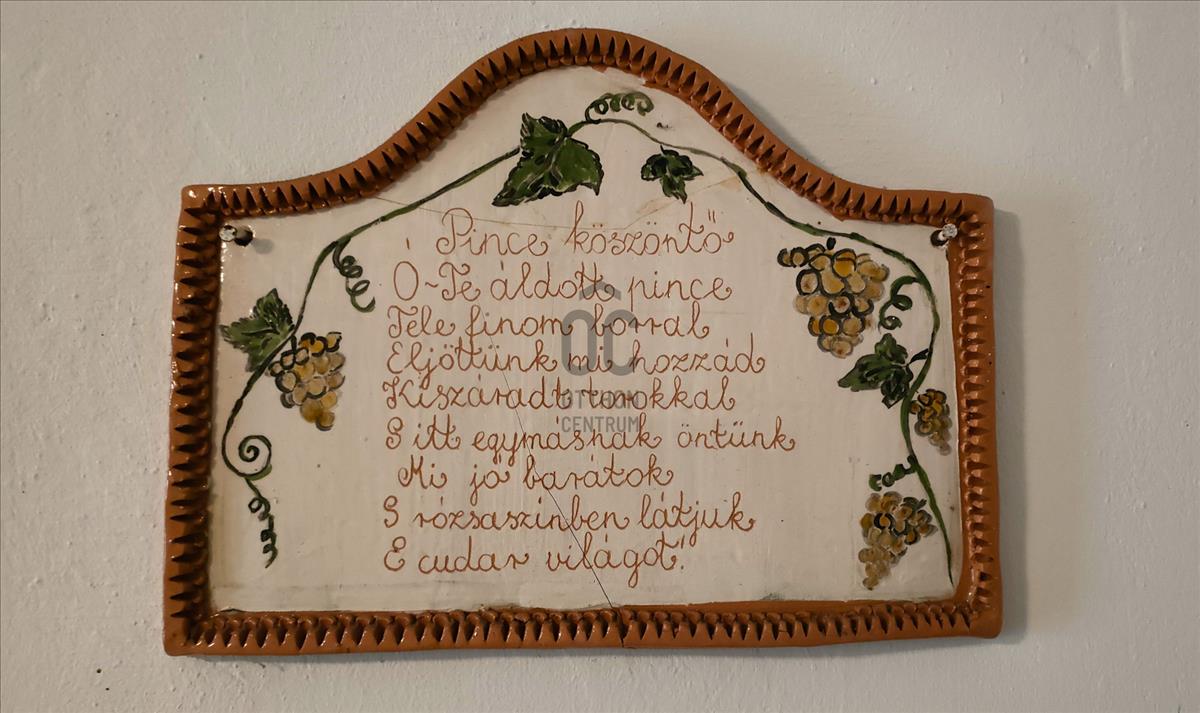 Pince köszöntő
Ó-Te áldott pince
Tele finom borral
Eljöttünk mi hozzád
Kiszáradt torokkal
S itt egymásnak öntünk
Mi jó barátok
S rózsaszinben látjuk
E cudar világot!
OC
OTTHON
CENTRUM